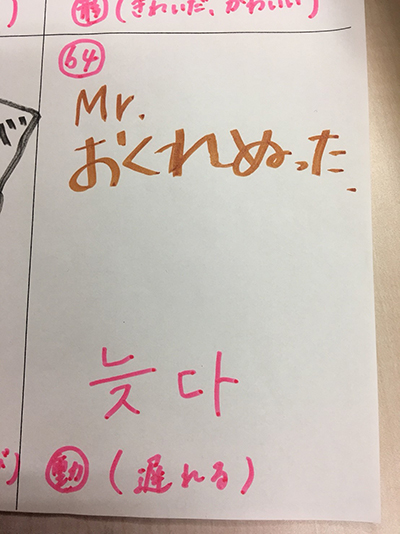 形 (きれいだ、かわいい)
64
Mr.
おくれぬった.
늦다
動 (遅れる)